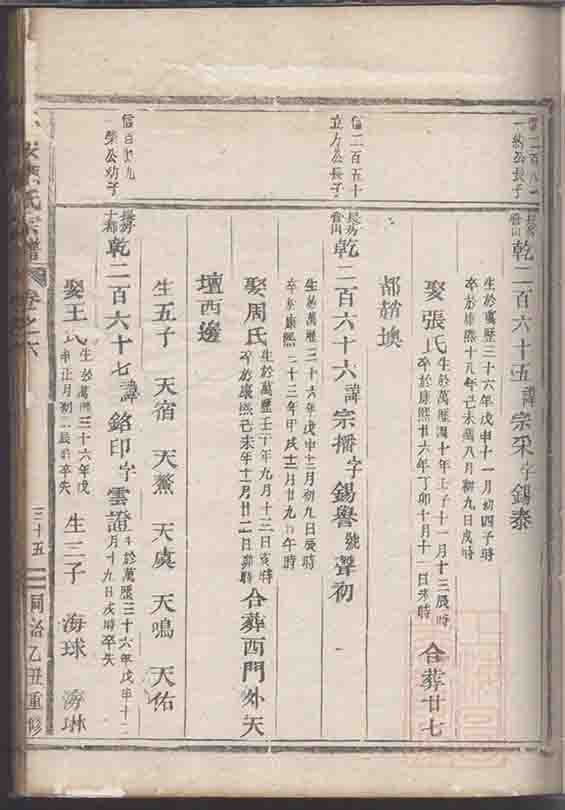 一約公長子
長房 乾二百六十五諱宗采字錫泰
生於萬歷三十六年戊申十一月初四子時
卒於康熙十八年己未八月初九日戌時
娶張氏 生於萬歷四十年壬子十一月十三辰時
卒於康熙廿六年丁卯十月十一日未時 合葬廿七
都 墺
信二百五十
立方公長子
長房 乾二百六十六諱宗播字錫譽號聲初
生於萬歷三十六年戊申十二月初九日辰時
卒於康熙三十三年甲戌十二月廿九日午時
娶周氏 生於萬歷壬子年九月十三日亥時
卒於康熙己未年十二月廿二日 時 合葬西門外天
壇西邊
生五子 天宿 天薰 天虞 天鳴 天佑
榮公幼子
乾二百六十七諱銘印字雲證 生於萬歷三十六年戊申十二
月十九日戌時卒失
娶王氏 生於萬歷三十六年戊
申正月初二辰時卒失 生三子 海球 海琳
氏宗譜 卷之六 三十五 同治乙丑重修